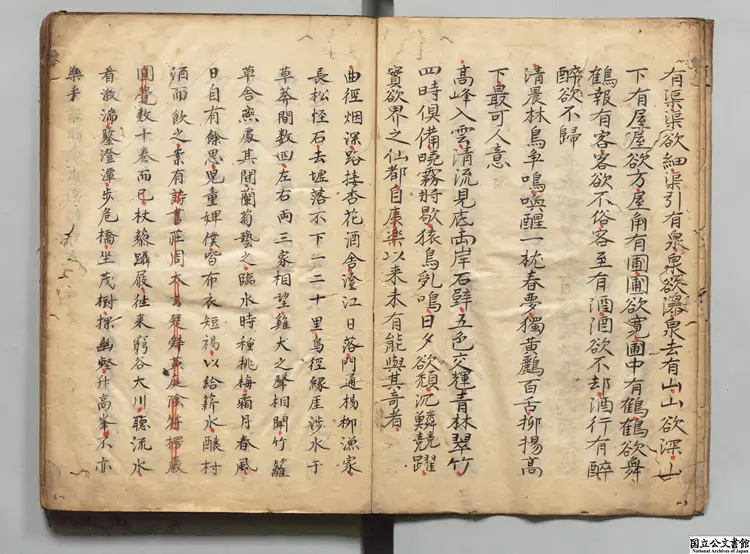 有渠渠欲細渠引有泉泉欲瀑泉去有山山欲深山
下有屋屋欲方屋角有圃圃欲寛圃中有鶴鶴欲舞
鶴報有客客欲不俗客至有酒酒欲不却酒行有醉
醉欲不歸
清晨林鳥爭鳴喚醒一枕春夢獨黄鸝百舌柳揚高
下最可人意
高峰入雲清流見底両岸石壁五色交輝青林翠竹
四時俱備曉霧將歇猿鳥乱鳴日夕欲頽沉鱗競躍
實欲界之仙都自康楽以来未有能與其奇者
曲徑烟深路接杏花酒舎澄江日落門通楊柳漁家
長松怪石去墟落不下一二十里鳥徑縁崖渉水于
草莽間数四左右両三家相望雞犬之聲相聞竹籬
草舎燕處其間蘭菊藝之臨水時種桃梅霜月春風
日自有餘思児童婢僕皆布衣短褐以給薪水醸村
酒而飲之案有詩書荘周太玄楚辞黄庭陰符楞嚴
圓覺数十巻而已杖藜躡屐往来窮谷大川聴流水
看激湍鑒澄潭歩危橋坐茂樹探幽壑升高峯不亦
楽乎
国立公文書館
National Archives of Japan